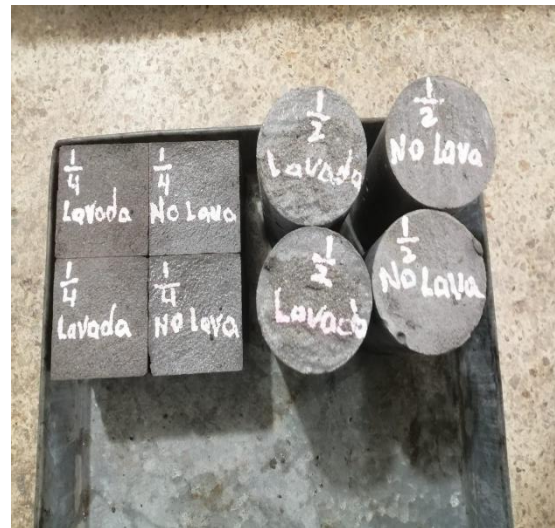 1/4
Lavada
1/4
No Lava
1/4
Lavada
1/4
No Lava
1/2
Lavada
1/2
No Lava
1/2
Lavada
1/2
No Lava